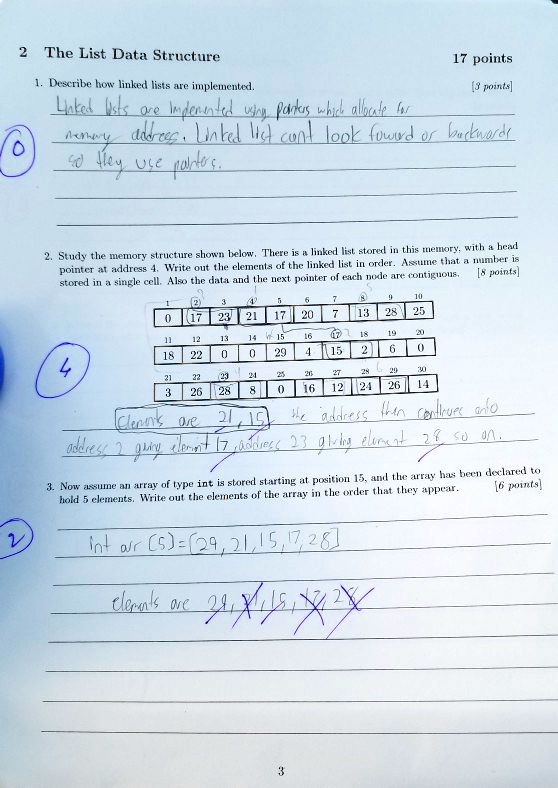 2 The List Data Structure 17 points
1. Describe how linked lists are implemented. [3 points]
Linked lists are implemented using pointers which allocate for
memory address. Linked list can't look foward or backwards
0
so they use pointers.
2. Study the memory structure shown below. There is a linked list stored in this memory, with a head
pointer at address 4. Write out the elements of the linked list in order. Assume that a number is
stored in a single cell. Also the data and the next pointer of each node are contiguous. [8 points]
1 2 3 4 5 6 7 8 9 10
0 17 23 21 17 20 7 13 28 25
11 12 13 14 15 16 17 18 19 20
18 22 0 0 29 4 15 2 6 0
4
21 22 23 24 25 26 27 28 29 30
3 26 28 8 0 16 12 24 26 14
Elements are 21, 15, the address then continues onto
address 2 giving element 17, address 23 giving element 28 so on.
3. Now assume an array of type int is stored starting at position 15, and the array has been declared to
hold 5 elements. Write out the elements of the array in the order that they appear. [6 points]
2
int arr [5] = [29, 21, 15, 17, 28]
elements are 29, 21, 15, 17, 28
3